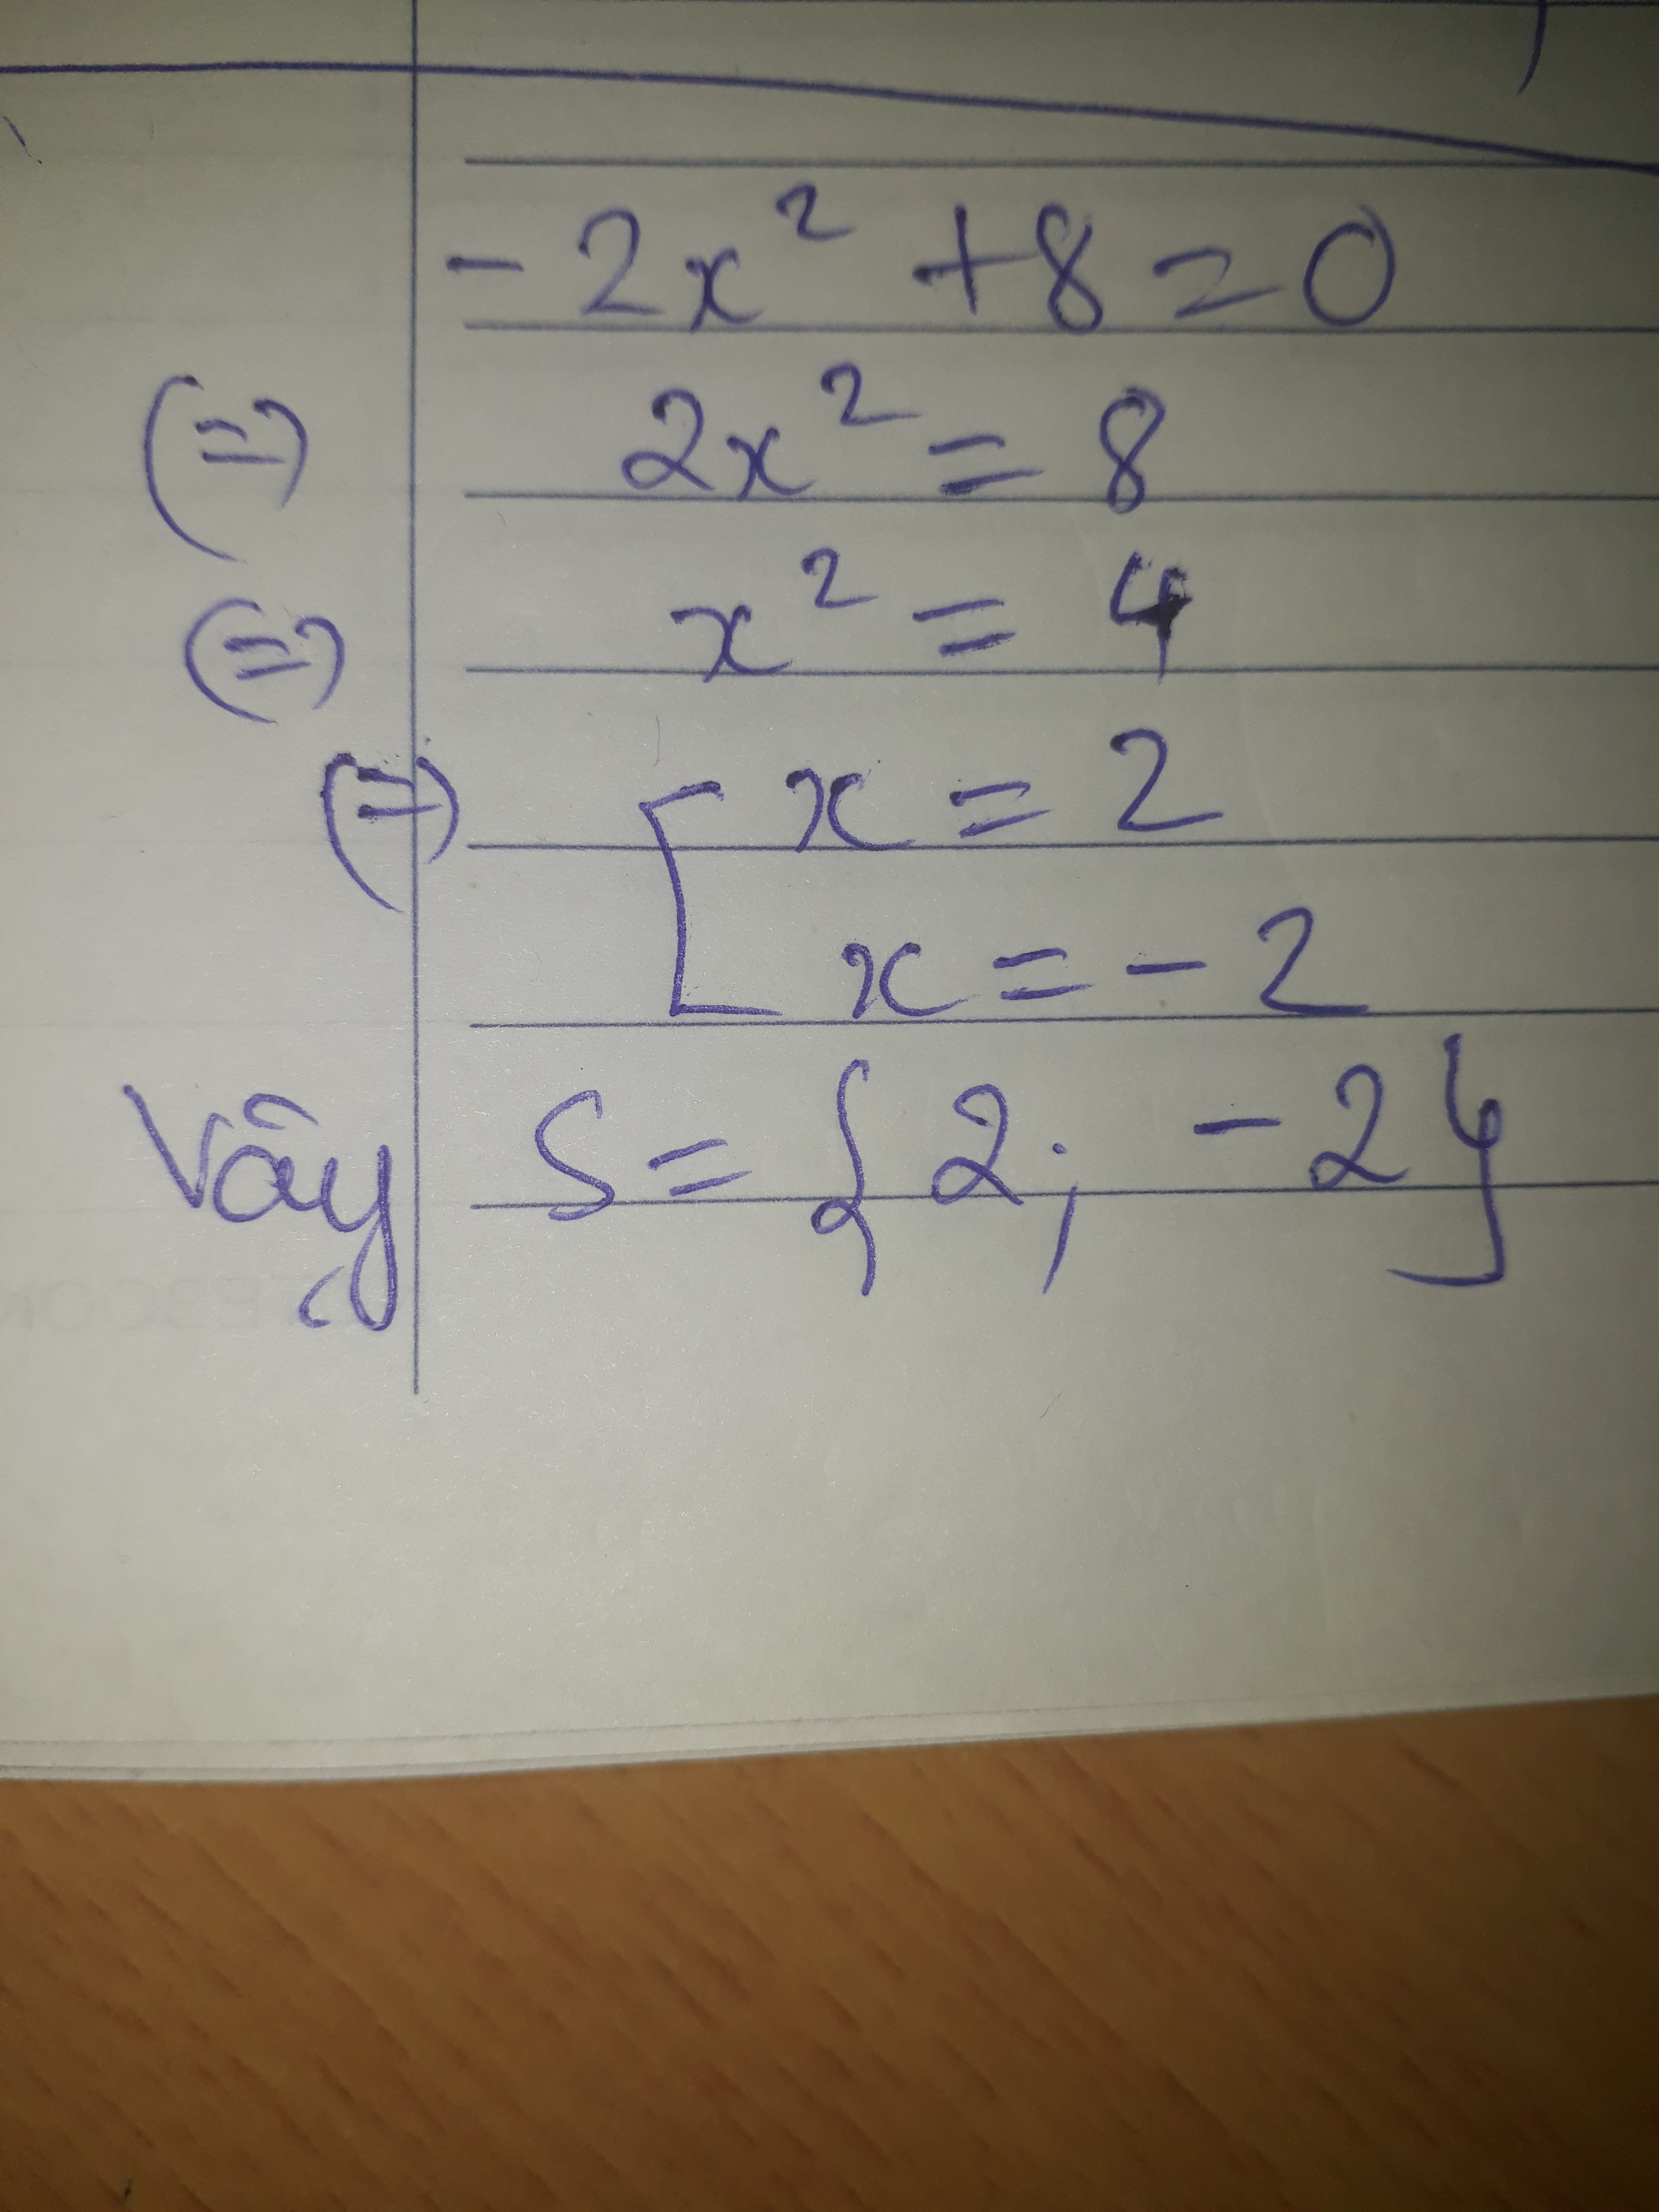 -2x² + 8 = 0
(=) 2x² = 8
(=) x² = 4
(=) [ x = 2
x = -2
Vậy S = {2; -2}